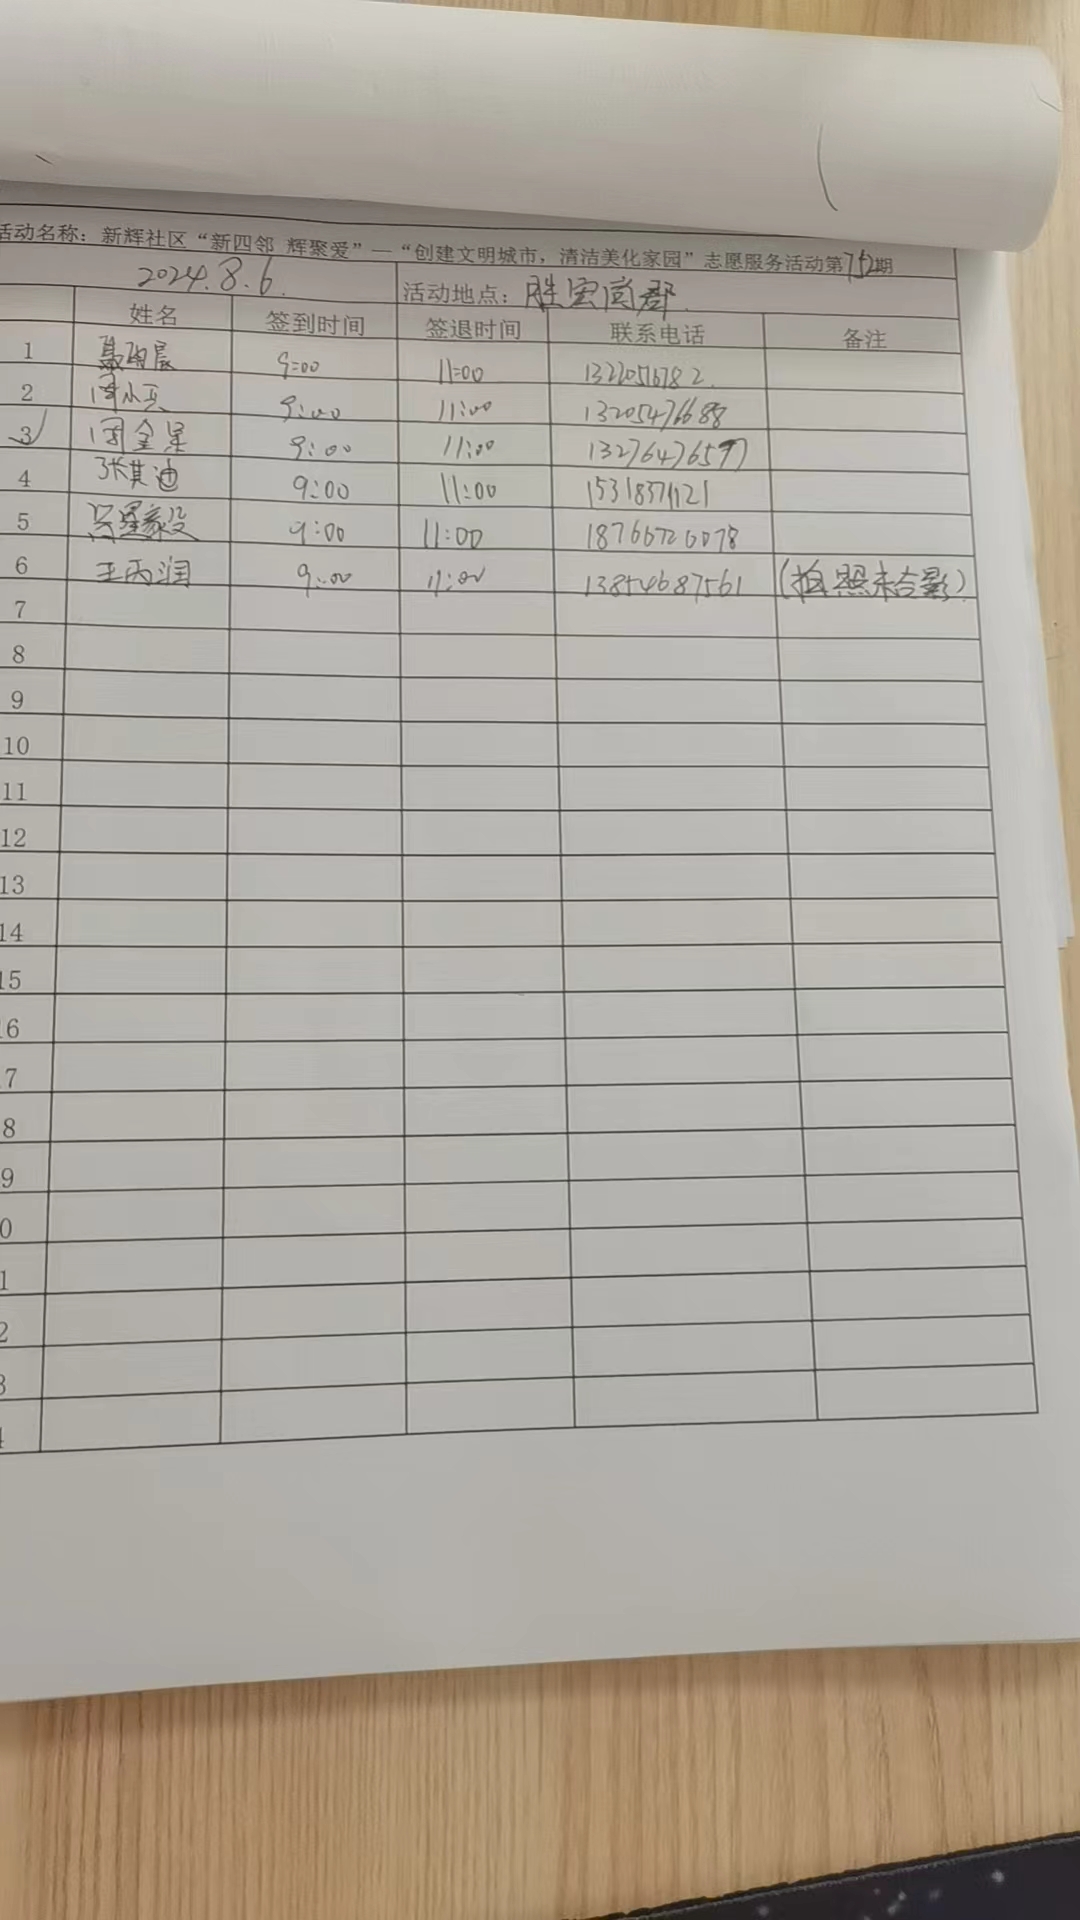 活动名称：新辉社区“新四邻 辉聚爱”—“创建文明城市，清洁美化家园”志愿服务活动第752期
2024.8.6. 活动地点：胜宏尚郡
姓名 签到时间 签退时间 联系电话 备注
1 9:00 11:00
2 9:00 11:00 13205476688
3 周金星 9:00 11:00 13276476597
4 张其迪 9:00 11:00 15318371121
5 9:00 11:00 18766726078
6 王丙润 9:00 11:00 13854687561 (拍照未合影)
7
8
9
10
11
12
13
14
15
6
7
8
9
0
1
2
3
4